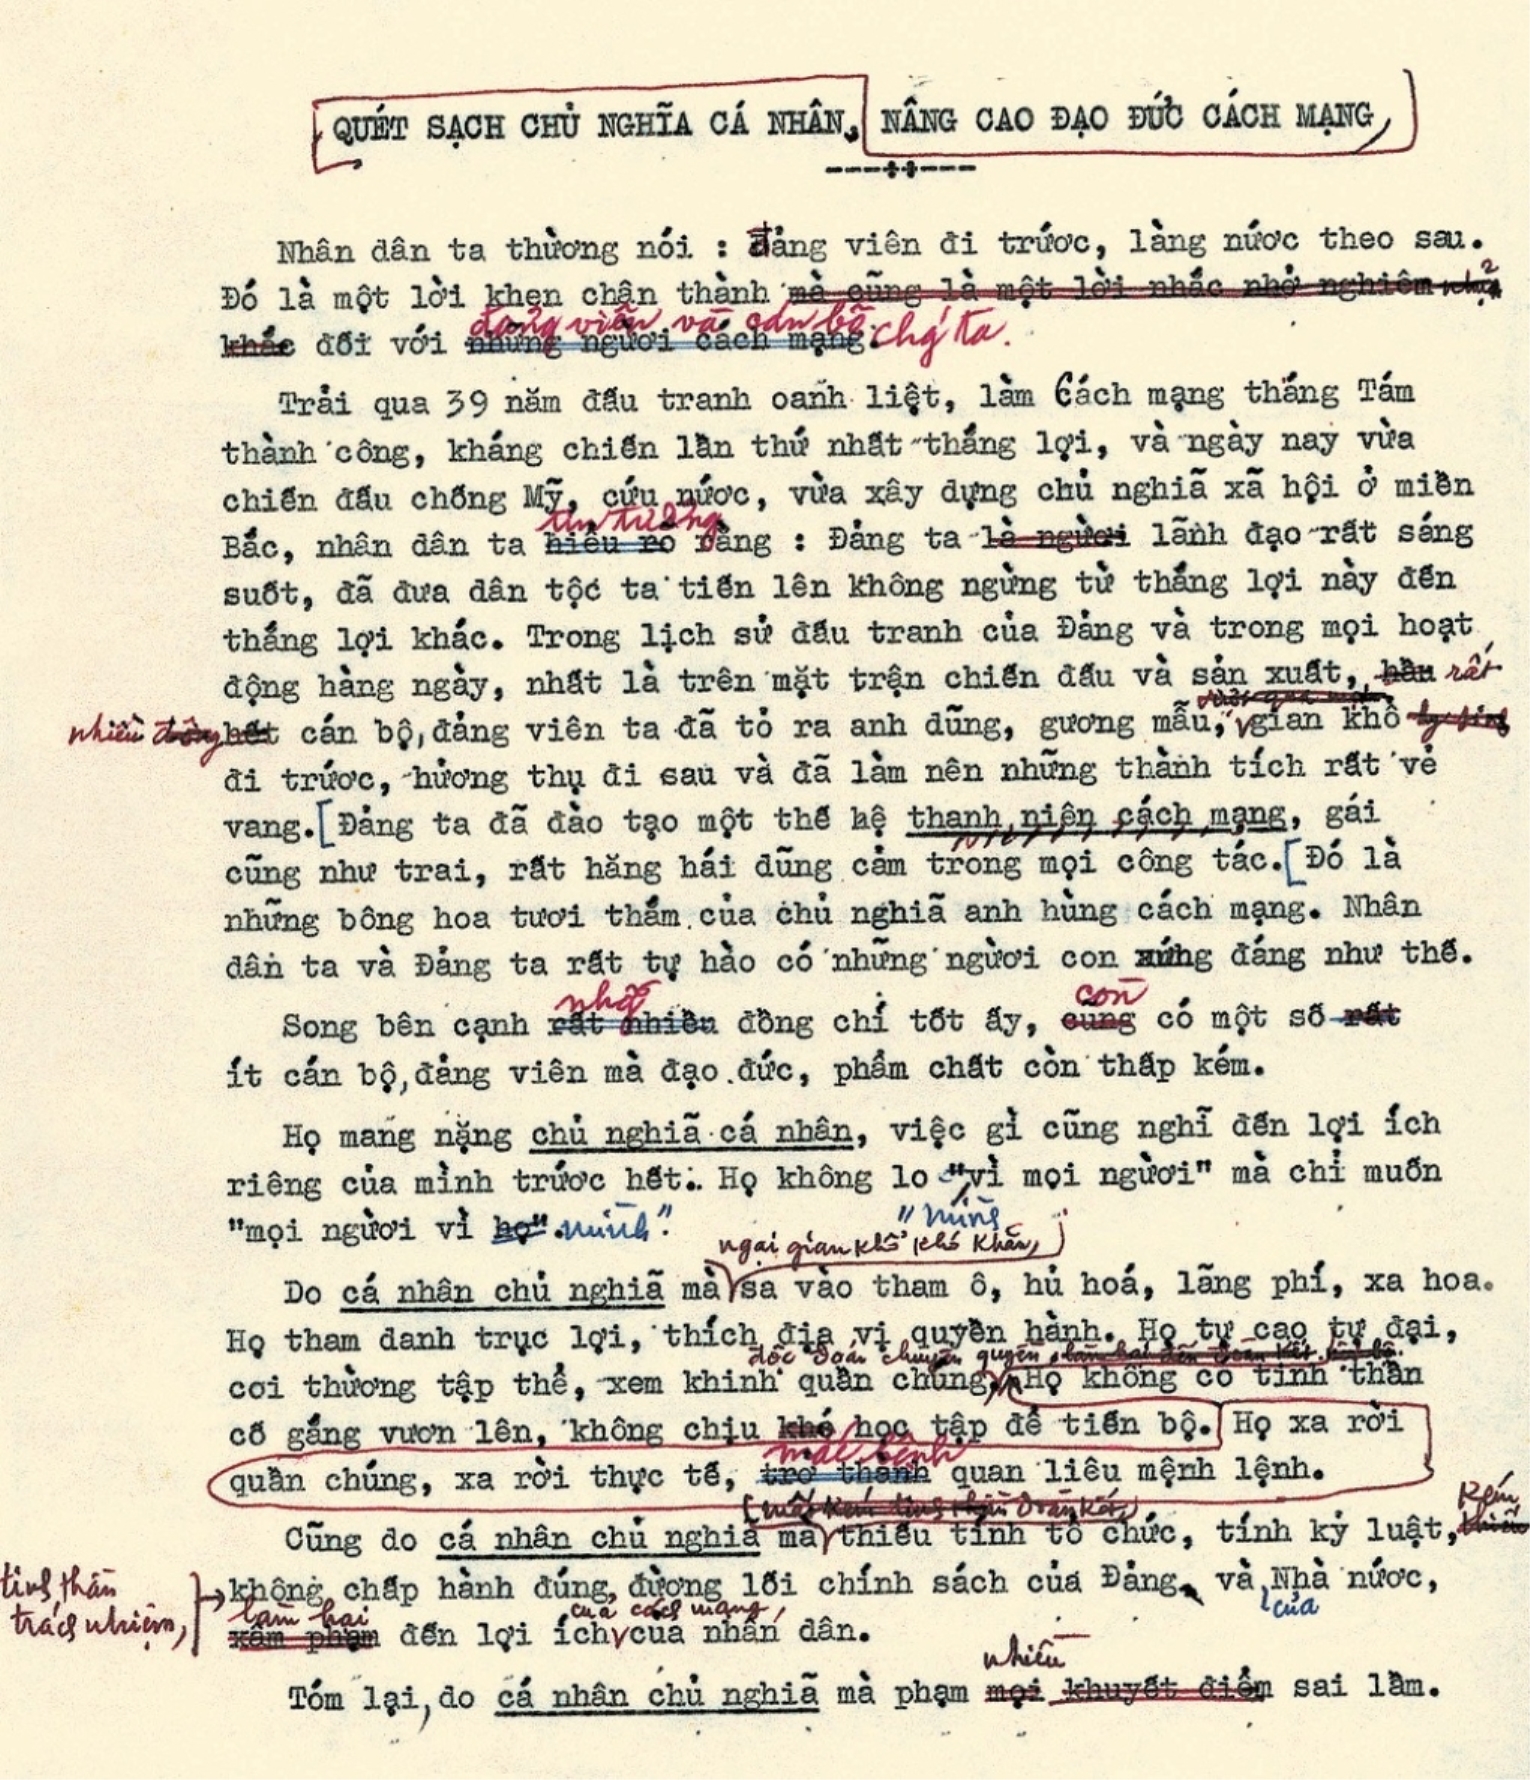 QUÉT SẠCH CHỦ NGHĨA CÁ NHÂN, NÂNG CAO ĐẠO ĐỨC CÁCH MẠNG,
Nhân dân ta thường nói : đảng viên đi trước, làng nước theo sau.
Đó là một lời khen chân thành mà cũng là một lời nhắc nhở nghiêm
đảng viên và cán bộ chúng ta.
khắc đối với những người cách mạng.
Trải qua 39 năm đấu tranh oanh liệt, làm Cách mạng tháng Tám
thành công, kháng chiến lần thứ nhất thắng lợi, và ngày nay vừa
chiến đấu chống Mỹ, cứu nước, vừa xây dựng chủ nghĩa xã hội ở miền
tin tưởng
Bắc, nhân dân ta hiểu rõ rằng : Đảng ta là người lãnh đạo rất sáng
suốt, đã đưa dân tộc ta tiến lên không ngừng từ thắng lợi này đến
thắng lợi khác. Trong lịch sử đấu tranh của Đảng và trong mọi hoạt
động hàng ngày, nhất là trên mặt trận chiến đấu và sản xuất, hầu rất
nhiều hết cán bộ, đảng viên ta đã tỏ ra anh dũng, gương mẫu, gian khổ
đi trước, hưởng thụ đi sau và đã làm nên những thành tích rất vẻ
vang. [Đảng ta đã đào tạo một thế hệ thanh niên cách mạng, gái
cũng như trai, rất hăng hái dũng cảm trong mọi công tác. [Đó là
những bông hoa tươi thắm của chủ nghĩa anh hùng cách mạng. Nhân
dân ta và Đảng ta rất tự hào có những người con xứng đáng như thế.
những còn
Song bên cạnh rất nhiều đồng chí tốt ấy, cũng có một số rất
ít cán bộ, đảng viên mà đạo đức, phẩm chất còn thấp kém.
Họ mang nặng chủ nghĩa cá nhân, việc gì cũng nghĩ đến lợi ích
riêng của mình trước hết. Họ không lo "vì mọi người" mà chỉ muốn
"mình
"mọi người vì họ". mình".
ngại gian khổ khó khăn,
Do cá nhân chủ nghĩa mà sa vào tham ô, hủ hoá, lãng phí, xa hoa.
Họ tham danh trục lợi, thích địa vị quyền hành. Họ tự cao tự đại,
độc đoán chuyên quyền
coi thường tập thể, xem khinh quần chúng, Họ không có tinh thần
cố gắng vươn lên, không chịu khó học tập để tiến bộ. Họ xa rời
mắc bệnh
quần chúng, xa rời thực tế, trở thành quan liêu mệnh lệnh.
kém
Cũng do cá nhân chủ nghĩa mà thiếu tính tổ chức, tính kỷ luật, thiếu
tinh thần
trách nhiệm,
không chấp hành đúng đường lối chính sách của Đảng, và Nhà nước,
làm hại của cách mạng, của
xâm phạm đến lợi ích của nhân dân.
nhiều
Tóm lại, do cá nhân chủ nghĩa mà phạm mọi khuyết điểm sai lầm.